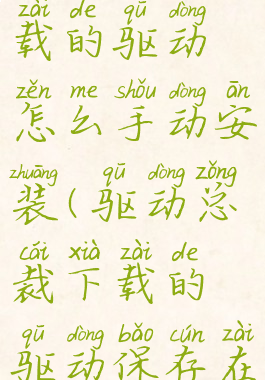 zài de qū dòng
载的驱动
zěn me shǒu dòng ān
怎么手动安
zhuāng qū dòng zǒng
装(驱动总
cái xià zài de
裁下载的
qū dòng bǎo cún zài
驱动保存在